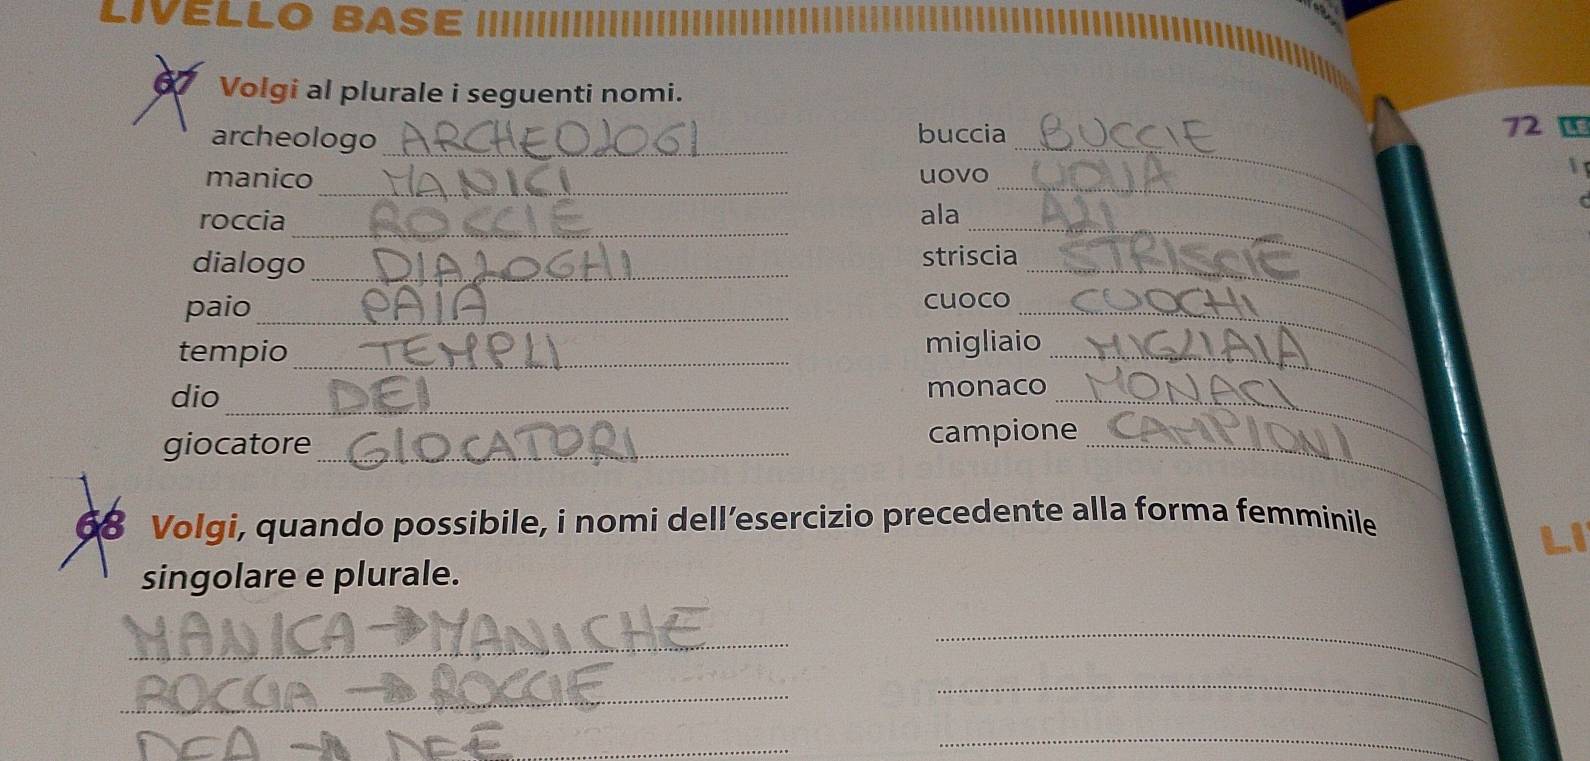 LIVELLO BASE
67 Volgi al plurale i seguenti nomi.
archeologo ARCHEOLOGI
manico MANICI
roccia ROCCIE
dialogo DIALOGHI
paio PAIA
tempio TEMPLI
dio DEI
giocatore GIOCATORI
buccia BUCCIE
uovo UOVA
ala ALI
striscia STRISCIE
cuoco CUOCHI
migliaio MIGLIAIA
monaco MONACI
campione CAMPIONI
68 Volgi, quando possibile, i nomi dell'esercizio precedente alla forma femminile
singolare e plurale.
MANICA → MANICHE
ROCCIA → ROCCIE
DEA → DEE
72 LE
LI